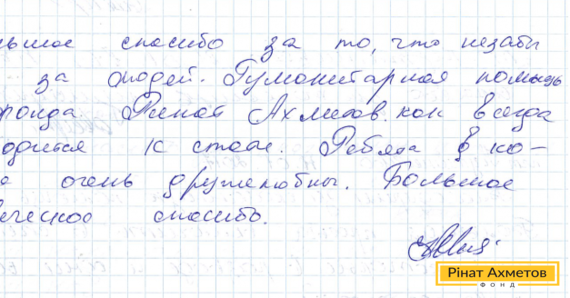 льшое спасибо за то, что незабы
за людей. Гуманитарная помощь
фонда Ринат Ахметов. как всегда
одиться к стат. Ребята в ко-
е очень дружелюбны. Большое
ческое спасибо.
Рінат Ахметов
ФОНД